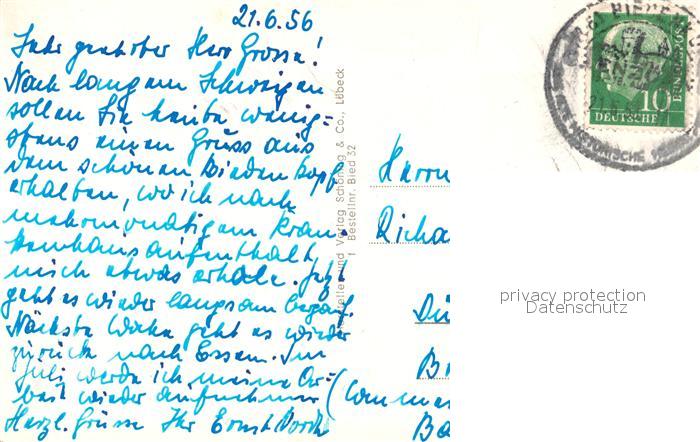 21.6.56
Sehr geehrter Herr Grosse!
Nach langem Schweigen
sollen Sie heute wenig=
stens einen Gruss aus
dem schönen Biedenkopf
erhalten, wo ich nach
mehrmonatigem Kran-
kenhausaufenthalt
mich etwas erhole. Jetzt
geht es wieder langsam bergauf.
Nächste Woche geht es wieder
zurück nach Essen. Im
Juli werde ich meine Ar=
beit wieder aufnehmen
Herzl. Grüsse Ihr Ernst
Verlag Schöning & Co., Lübeck
Bestellnr. Bied 32
Herrn
Richa
Dü
B
Ba
10
DEUTSCHE
BUNDESPOST
privacy protection
Datenschutz